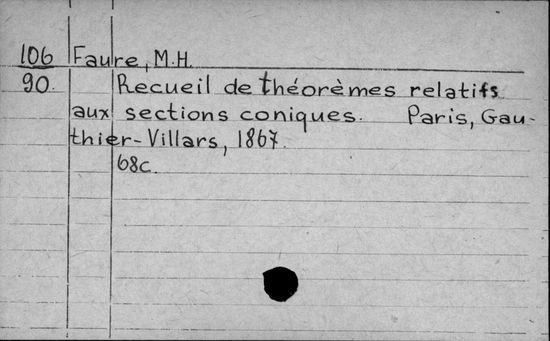 106 Faure, M.H.
90. Recueil de théorèmes relatifs
aux sections coniques. Paris, Gau-
thier-Villars, 1867.
68c.